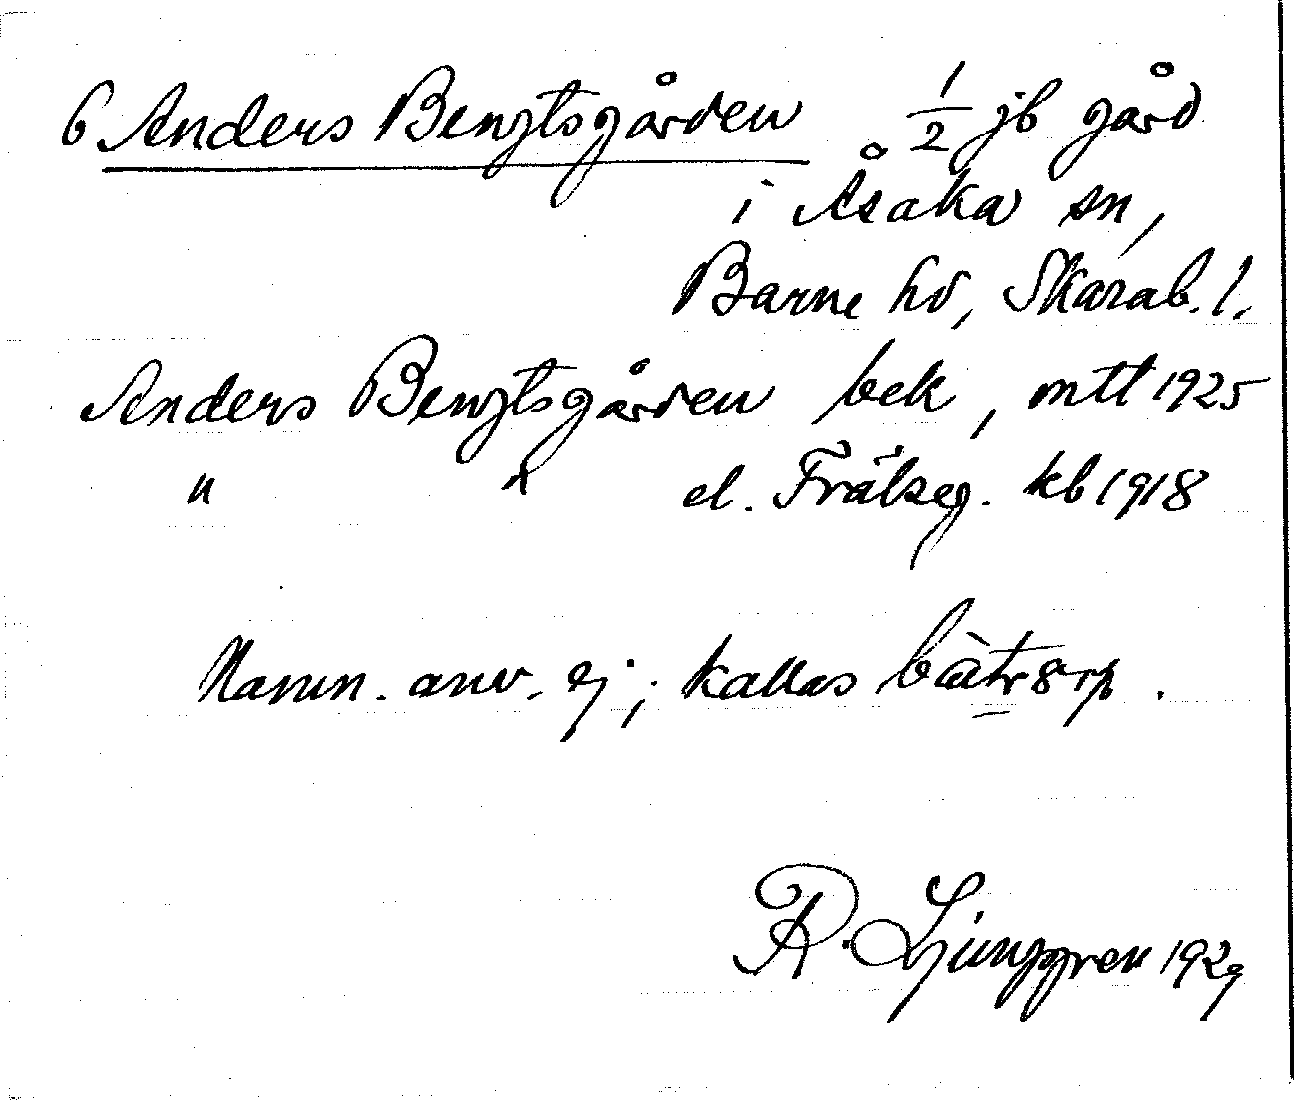 6 Anders Bengtsgården 1/2 jb gård
i Åsaka sn,
Barne hd, Skarab. l.
Anders Bengtsgården bek, mtl 1925
" " el. Frälseg. kb 1918
Namn. anv. ej; kallas
R. Ljunggren 1929